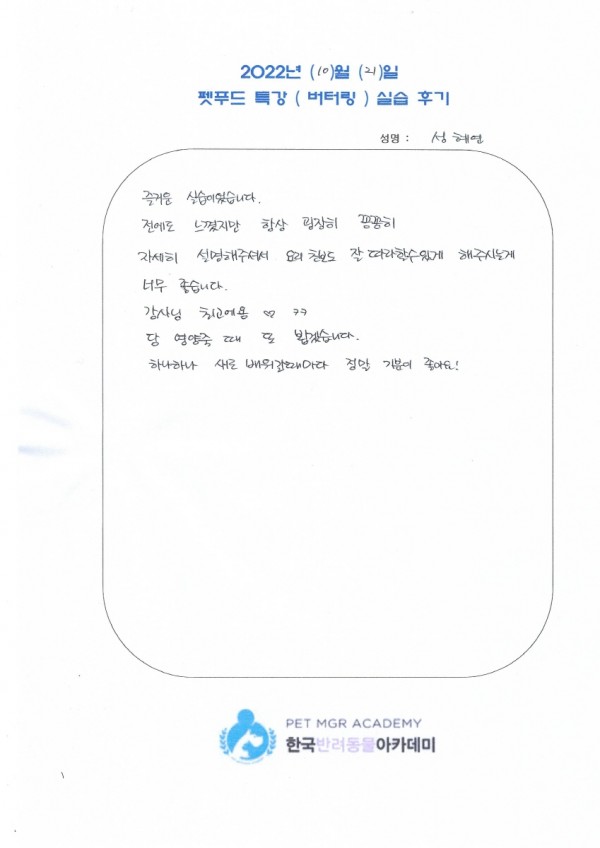 2022년 (10)월 (21)일
펫푸드 특강 ( 버터링 ) 실습 후기
성명 : 성혜연
즐거운 실습이었습니다.
전에도 느꼈지만 항상 굉장히 꼼꼼히
자세히 설명해주셔서 요리 초보도 잘 따라할수있게 해주시는게
너무 좋습니다.
강사님 최고예용 ♡ ㅋㅋ
담 영양죽 때 또 뵙겠습니다.
하나하나 새로 배워갈때마다 정말 기분이 좋아요!
PET MGR ACADEMY
한국반려동물아카데미